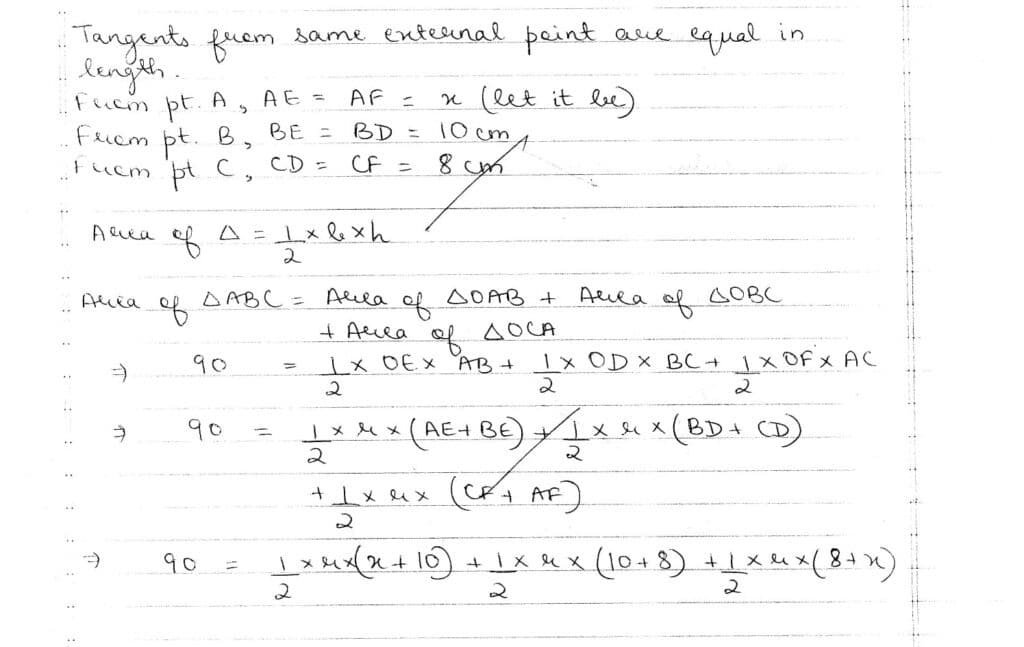 Tangents from same external point are equal in
length.
From pt. A, AE = AF = x (let it be)
From pt. B, BE = BD = 10 cm
From pt C, CD = CF = 8 cm
Area of △ = 1/2 × b × h
Area of △ABC = Area of △OAB + Area of △OBC
+ Area of △OCA
⇒ 90 = 1/2 × OE × AB + 1/2 × OD × BC + 1/2 × OF × AC
⇒ 90 = 1/2 × r × (AE + BE) + 1/2 × r × (BD + CD)
+ 1/2 × r × (CF + AF)
⇒ 90 = 1/2 × r × (x + 10) + 1/2 × r × (10 + 8) + 1/2 × r × (8 + x)